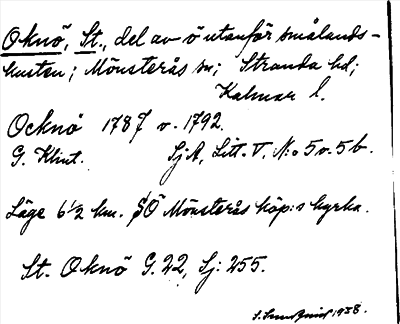 Oknö, St., del av ö utanför smålands-
kusten; Mönsterås sn; Stranda hd;
Kalmar l.
Ocknö 1787 o. 1792.
G. Klint. SjA, Litt. V, N:o 5 o. 5 b.
Läge 6 1/2 km. SÖ Mönsterås köp:s kyrka.
St. Oknö G. 22, Sj: 255.
1958.